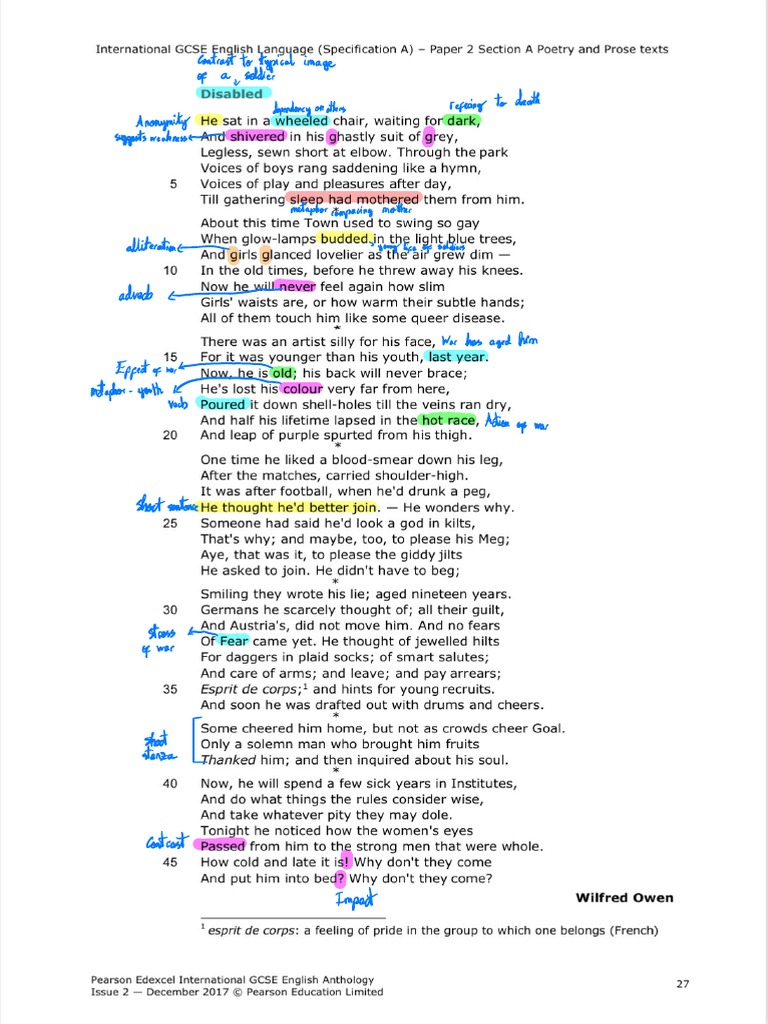 International GCSE English Language (Specification A) – Paper 2 Section A Poetry and Prose texts
Contrast to typical image
of a soldier
Disabled
dependency on others
refering to death
Anonymity
He sat in a wheeled chair, waiting for dark,
suggests weakness
And shivered in his ghastly suit of grey,
Legless, sewn short at elbow. Through the park
Voices of boys rang saddening like a hymn,
5 Voices of play and pleasures after day,
Till gathering sleep had mothered them from him.
metaphor comparing mother
*
About this time Town used to swing so gay
When glow-lamps budded in the light blue trees,
alliteration
young life of soldiers
And girls glanced lovelier as the air grew dim —
10 In the old times, before he threw away his knees.
Now he will never feel again how slim
adverb
Girls' waists are, or how warm their subtle hands;
All of them touch him like some queer disease.
*
There was an artist silly for his face, War has aged him
15 For it was younger than his youth, last year.
Effect of war
Now, he is old; his back will never brace;
metaphor - youth
He's lost his colour very far from here,
verb
Poured it down shell-holes till the veins ran dry,
And half his lifetime lapsed in the hot race, Action of war
20 And leap of purple spurted from his thigh.
*
One time he liked a blood-smear down his leg,
After the matches, carried shoulder-high.
It was after football, when he'd drunk a peg,
Short sentence
He thought he'd better join. — He wonders why.
25 Someone had said he'd look a god in kilts,
That's why; and maybe, too, to please his Meg;
Aye, that was it, to please the giddy jilts
He asked to join. He didn't have to beg;
*
Smiling they wrote his lie; aged nineteen years.
30 Germans he scarcely thought of; all their guilt,
And Austria's, did not move him. And no fears
stress
of war
Of Fear came yet. He thought of jewelled hilts
For daggers in plaid socks; of smart salutes;
And care of arms; and leave; and pay arrears;
35 Esprit de corps;1 and hints for young recruits.
And soon he was drafted out with drums and cheers.
*
Some cheered him home, but not as crowds cheer Goal.
short
stanza
Only a solemn man who brought him fruits
Thanked him; and then inquired about his soul.
*
40 Now, he will spend a few sick years in Institutes,
And do what things the rules consider wise,
And take whatever pity they may dole.
Tonight he noticed how the women's eyes
Contrast
Passed from him to the strong men that were whole.
45 How cold and late it is! Why don't they come
And put him into bed? Why don't they come?
Impact
Wilfred Owen
1 esprit de corps: a feeling of pride in the group to which one belongs (French)
Pearson Edexcel International GCSE English Anthology
Issue 2 — December 2017 © Pearson Education Limited
27